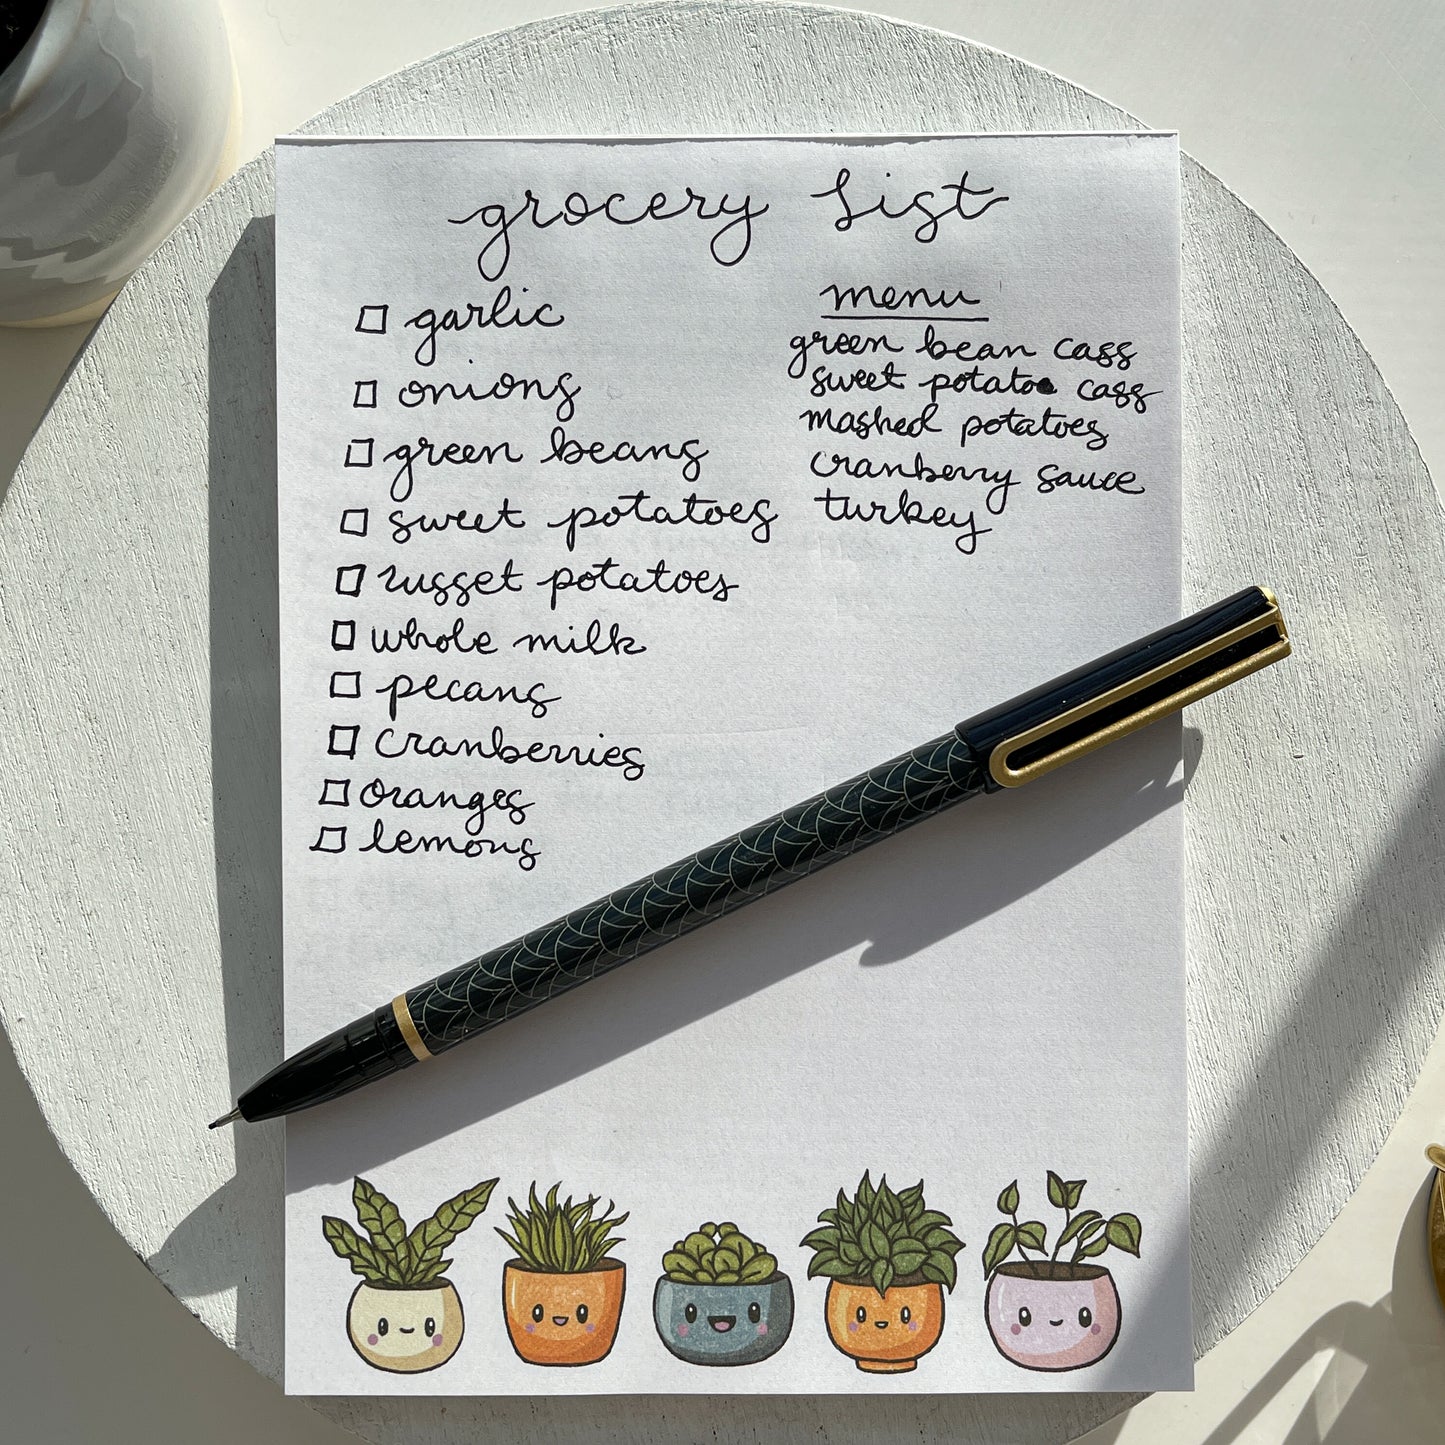 grocery list
garlic
onions
green beans
sweet potatoes
russet potatoes
whole milk
pecans
cranberries
oranges
lemons
menu
green bean cass
sweet potato cass
mashed potatoes
cranberry sauce
turkey